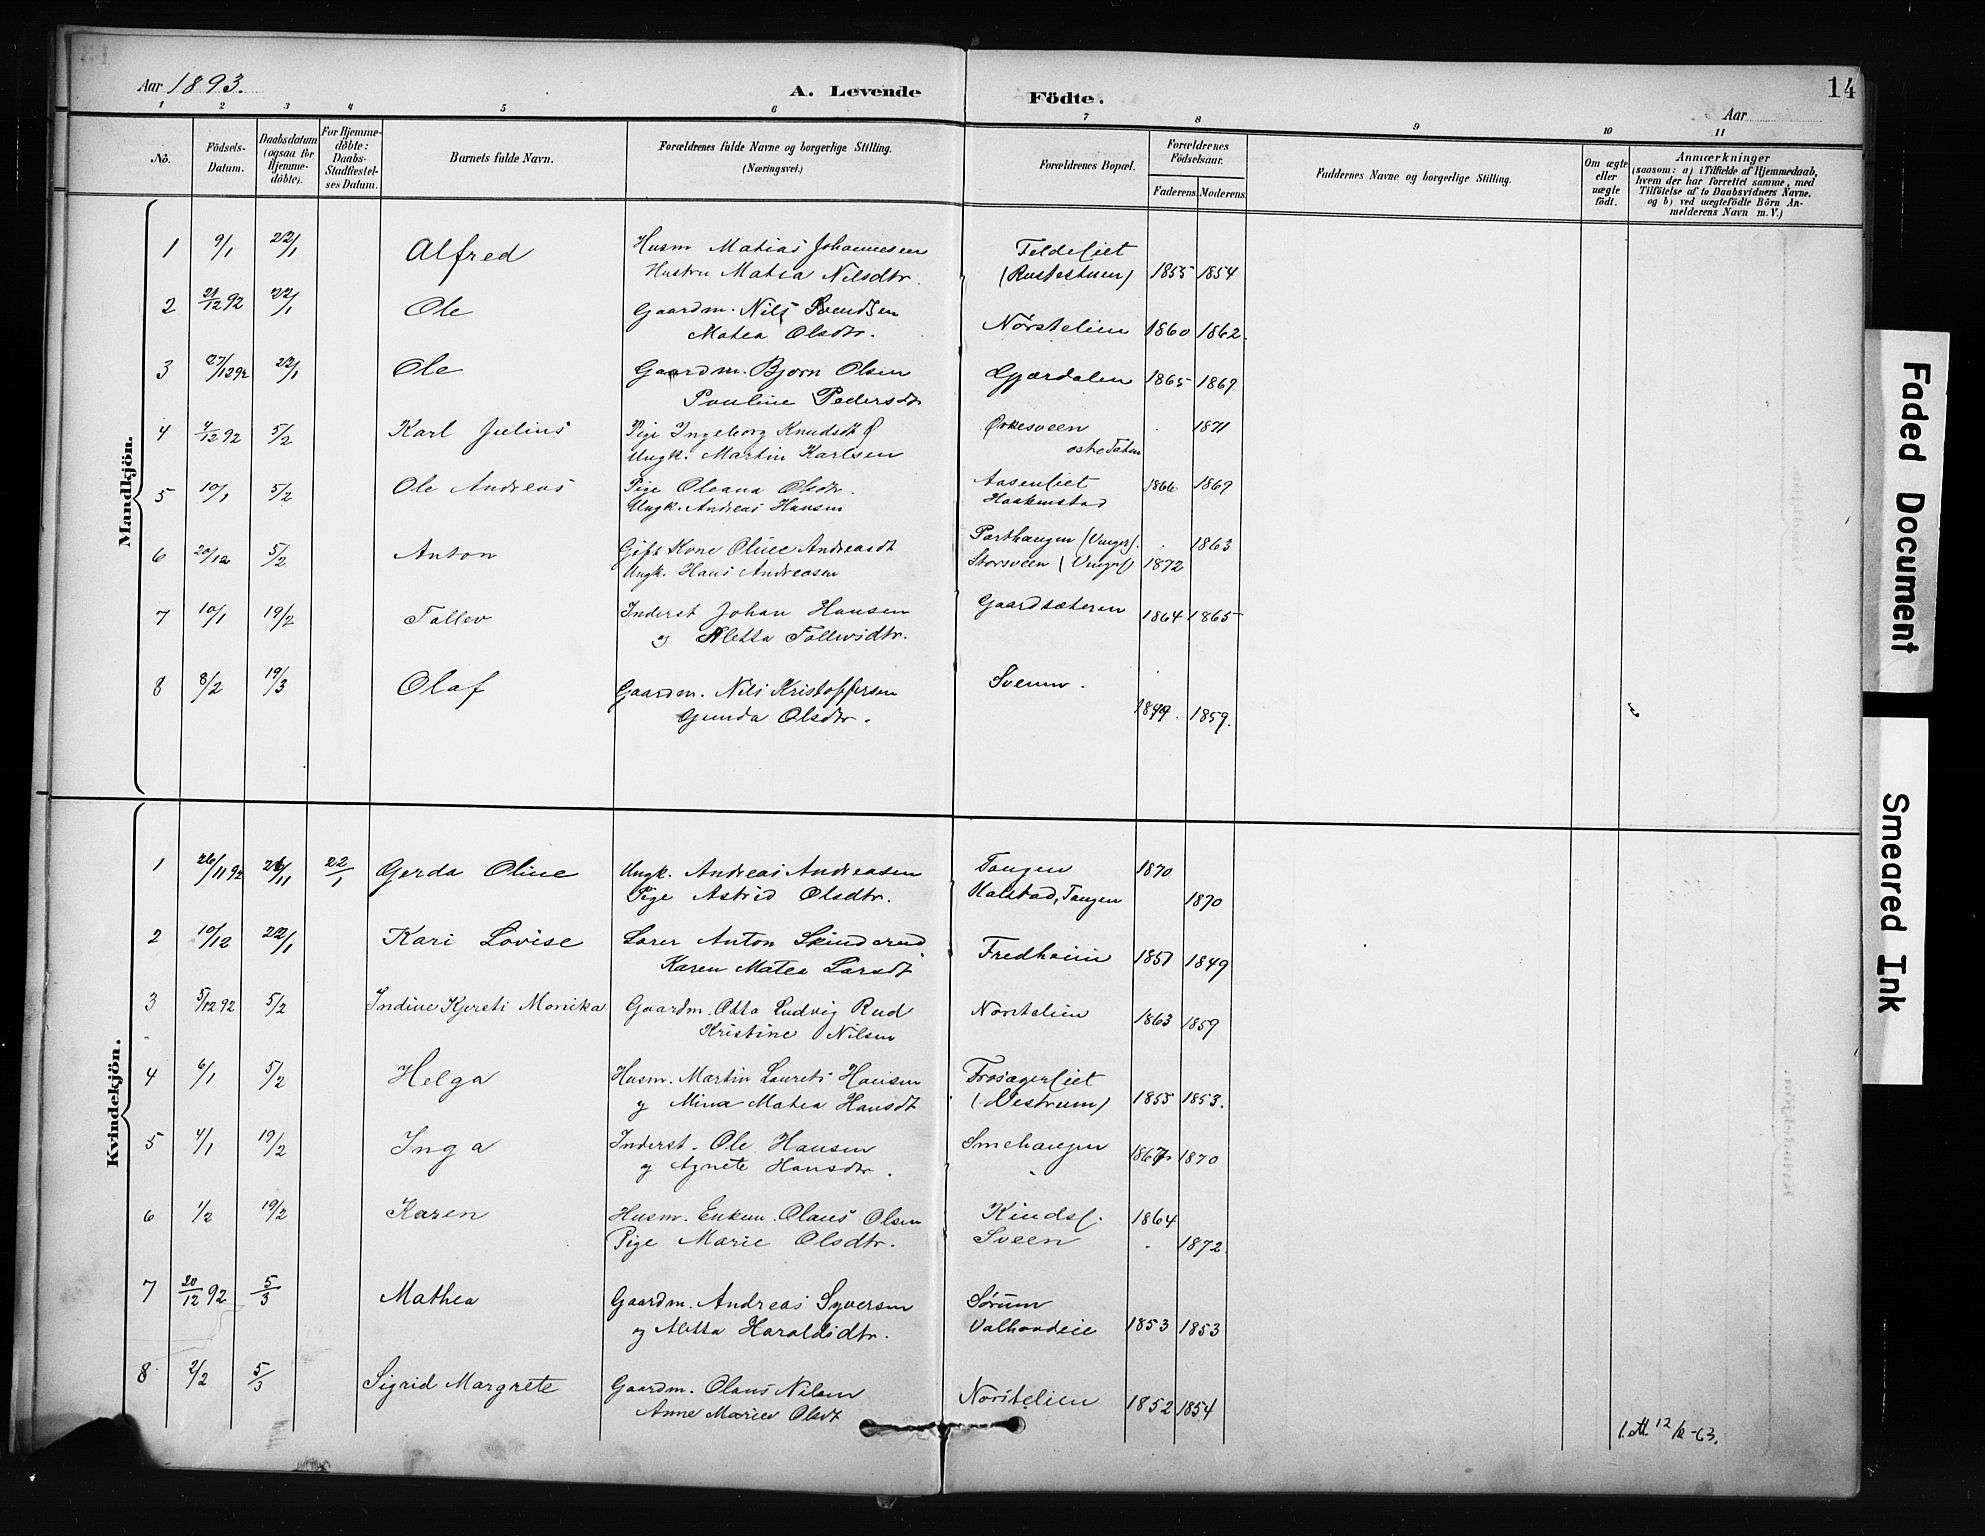 14
Aar 1893.
A. Levende Födte.
Aar
1 2 3 4 5 6 7 8 9 10 11
No.
Födsels-Datum.
Daabsdatum (ogsaa for Hjemme-döbte).
For Hjemme-döbte: Daabs-Stadfæstel-ses Datum.
Barnets fulde Navn.
Forældrenes fulde Navne og borgerlige Stilling.
(Næringsvei.)
Forældrenes Bopæl.
Forældrenes Födselsaar.
Faderens. Moderens.
Faddernes Navne og borgerlige Stilling.
Om ægte eller uægte födt.
Anmærkninger
(saasom: a) i Tilfælde af Hjemmedaab,
hvem der har forrettet samme, med
Tilföielse af to Daabsvidners Navne.
og b) ved uægtefödte Börn An-
melderens Navn m. V.)
Mandkjön.
1 9/1 22/1 Alfred Husm Matias Johannesen Feldeliet
Hustru Matea Nilsdtr. (Rustestuen) 1855 1854
2 21/12 92 22/1 Ole Gaardm. Nils Svendsen
Matea Olsdtr. Nørstelien 1860 1862.
3 27/12 92 22/1 Ole Gaardm. Bjørn Olsen Gjærdalen 1865 1869
Pauline Pedersdt
4 4/12 92 5/2 Karl Julius Pige Ingeborg Knudsdt Ørkesveen 1871
Ungk. Martin Karlsen
5 10/1 5/2 Ole Andreas Pige Oleana Olsdtr. Aasenliet 1866 1869
Ungk. Andreas Hansen Haakenstad
6 20/12 5/2 Anton Gift Kone Oline Andreasdt Parthaugen (Vinger). 1863
Ungk. Hans Andreasen Storsveen (Vinger) 1872
7 10/1 19/2 Tollev Inderst Johan Hansen Gaardsæteren 1864 1865
og Aletta Tollevsdtr.
8 8/2 19/3 Olaf Gaardm. Nils Kristoffersen Sveum.
Gunda Olsdtr. 1859.
Kvindekjön.
1 26/11 92 26/11 22/1 Gerda Oline Ungk. Andreas Andreasen Tangen 1870
Pige Astrid Olsdtr. Kalstad, Tangen 1870
2 10/12 22/1 Kari Lovise Lærer Anton Skinderud Fredheim 1857 1849
Karen Matea Larsdt
3 5/12 92 5/2 Indine Kjersti Monika Gaardm. Otto Ludvig Rud Nørstelien 1863 1859
Kristine Nilsen
4 6/1 5/2 Helga Husm. Martin Laurets Hansen Frøsagerliet
og Mina Matea Hansdt (Vestrum) 1855 1853.
5 4/1 19/2 Inga Inderst. Ole Hansen Smehaugen 1867 1870
og Agnete Hansdtr.
6 1/2 19/2 Karen Husm. Enkem. Olaus Olsen Kindsl. 1864
Pige Marie Olsdtr. Sveen 1872.
7 20/12 92 5/3 Mathea Gaardm. Andreas Syversen Sørum
og Aletta Haraldsdtr. Valhovdeie 1853 1853
8 2/2 5/3 Sigrid Margrete Gaardm. Olaus Nilsen Nørstelien 1852 1854
Anne Marie Olsdt
12/12-63.
Faded Document
Smeared Ink